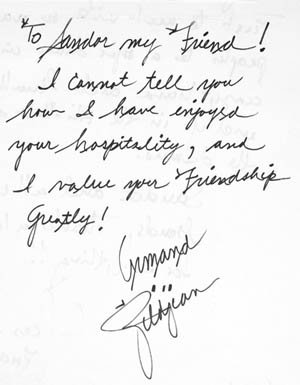 To Sandor my Friend!
I cannot tell you
how I have enjoyed
your hospitality, and
I value your Friendship
Greatly!
Armand
Zildjian